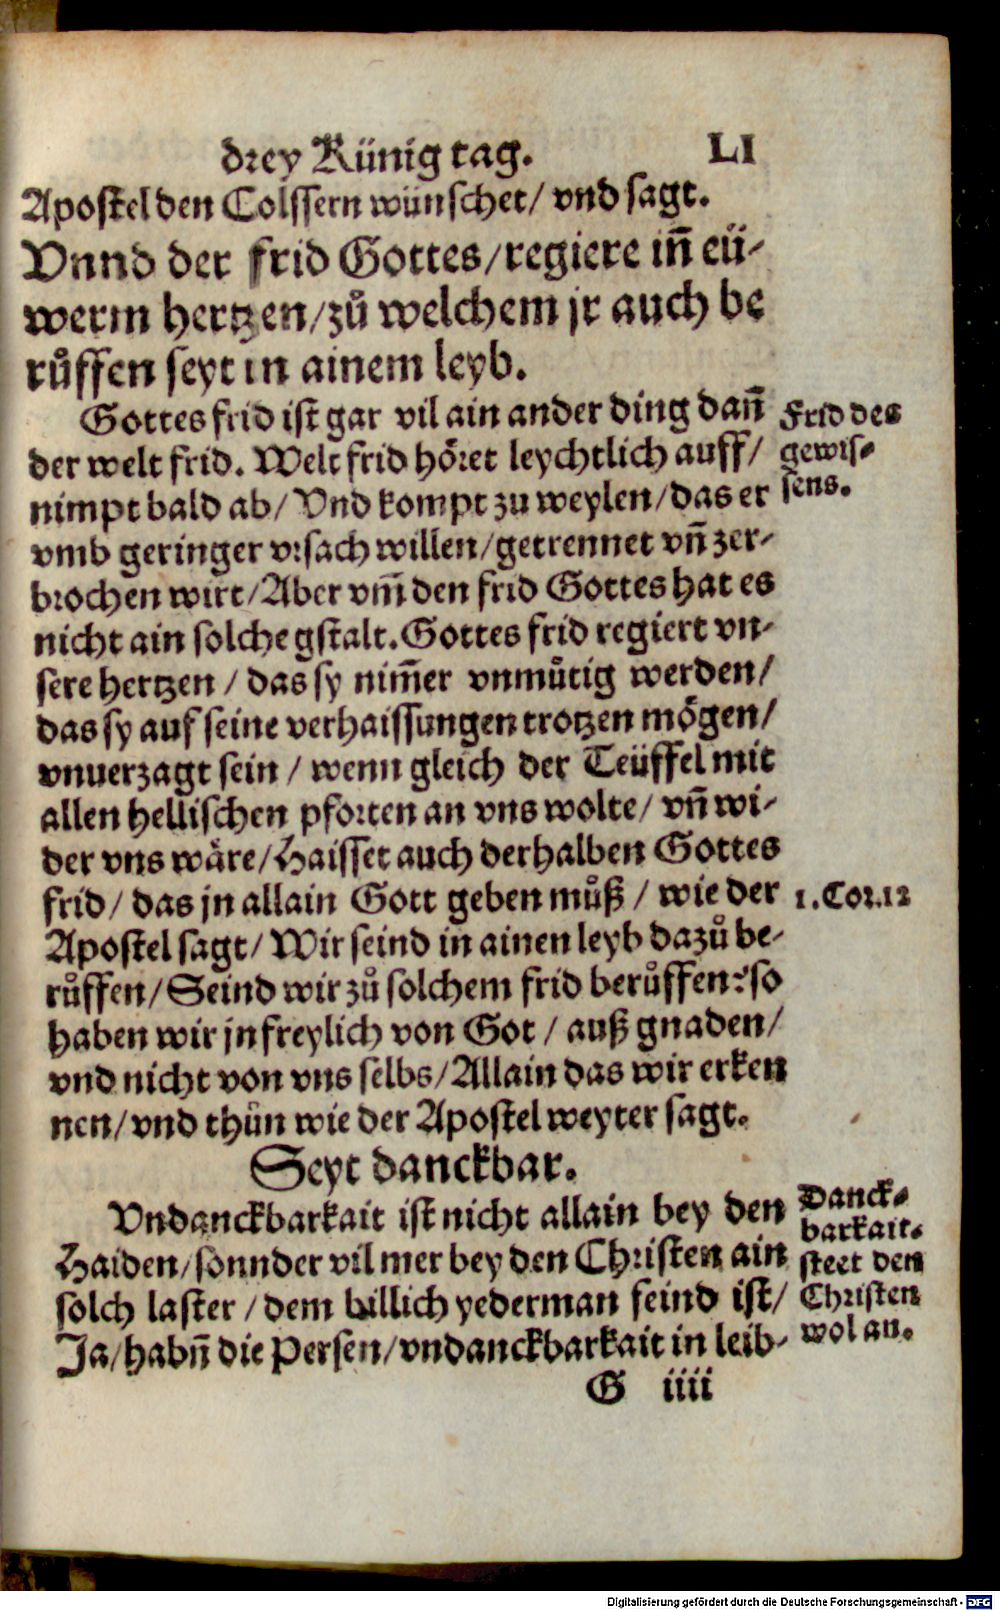 drey Künig tag. LI
Apostel den Colssern wünschet/ vnd sagt.
Vnnd der frid Gottes/regiere inn̄ eü-
werm hertzen/zů welchem jr auch be
růffen seyt in ainem leyb.
Gottes frid ist gar vil ain ander ding dan̄
der welt frid. Welt frid höret leychtlich auff/
nimpt bald ab/ Vnd kompt zu weylen/das er
vmb geringer vrsach willen/getrennet vn̄ zer-
brochen wirt/Aber vm̄ den frid Gottes hat es
nicht ain solche gstalt. Gottes frid regiert vn-
sere hertzen / das sy nim̄er vnmůtig werden/
das sy auf seine verhaissungen trotzen mögen/
vnuerzagt sein / wenn gleich der Teüffel mit
allen hellischen pforten an vns wolte/ vn̄ wi-
der vns wäre/Haisset auch derhalben Gottes
frid/ das jn allain Gott geben můß / wie der
Apostel sagt/ Wir seind in ainen leyb dazů be-
růffen/Seind wir zů solchem frid berůffen? so
haben wir jn freylich von Got / auß gnaden/
vnd nicht von vns selbs/Allain das wir erken
nen/vnd thůn wie der Apostel weyter sagt.
Seyt danckbar.
Vndanckbarkait ist nicht allain bey den
Haiden/sonnder vil mer bey den Christen ain
solch laster / dem billich yederman feind ist/
Ja/habn̄ die Persen/vndanckbarkait in leib-
G iiii
Frid des
gewis-
sens.
1. Cor. 12
Danck-
barkait
steet den
Christen
wol an.
Digitalisierung gefördert durch die Deutsche Forschungsgemeinschaft - DFG